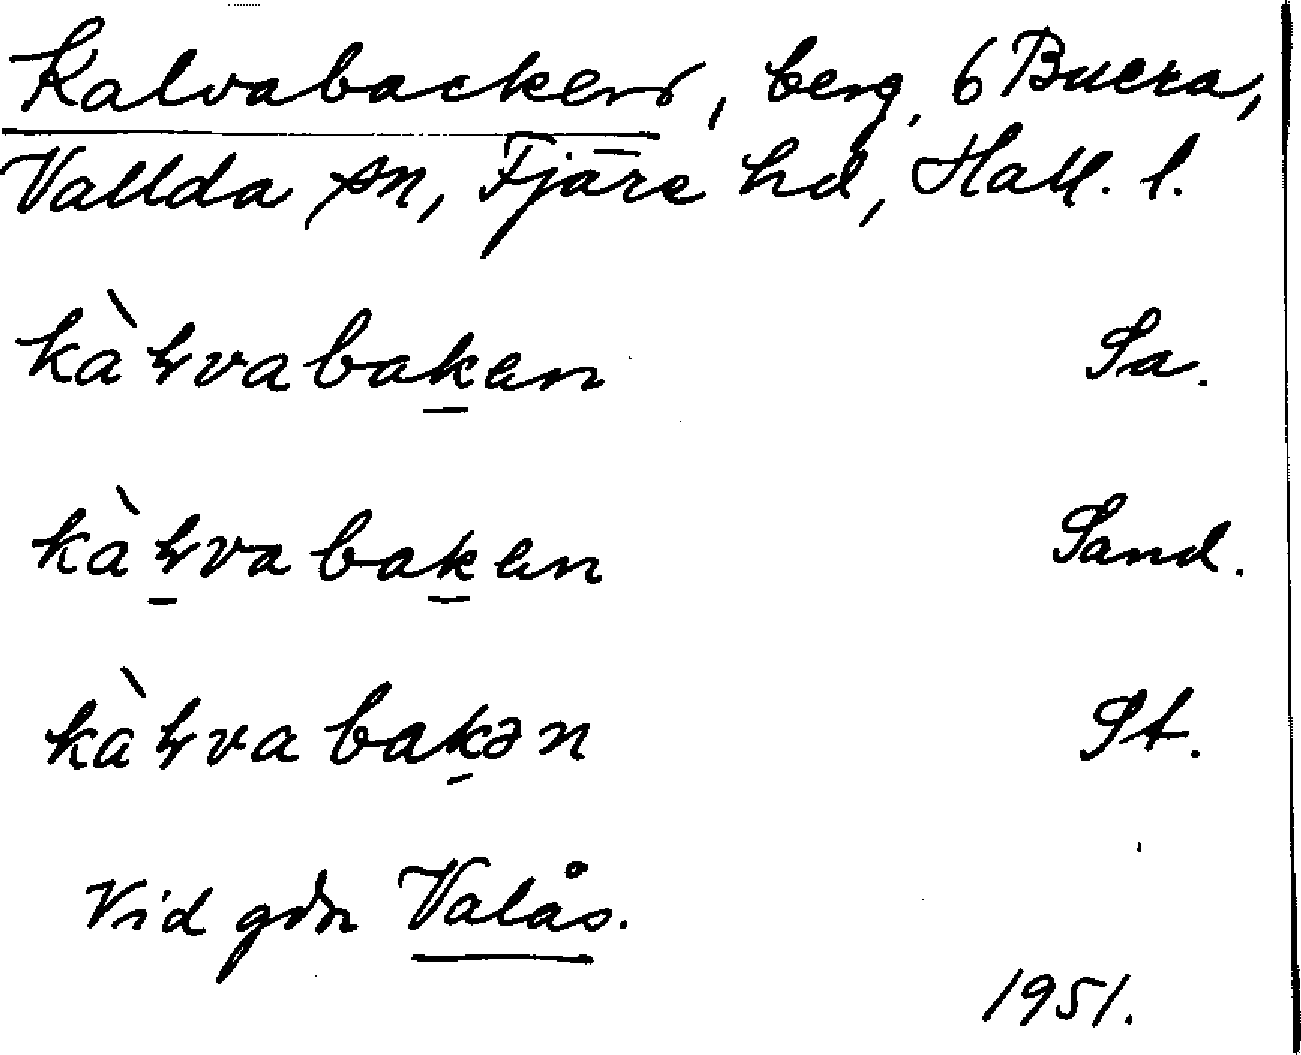 Kalvabacken, berg, 6 Buera,
Vallda sn, Fjäre hd, Hall. l.
kàɽvabaken Sa.
kàɽvabaken Sand.
kàɽvabakən St.
Vid gdn Valås.
1951.